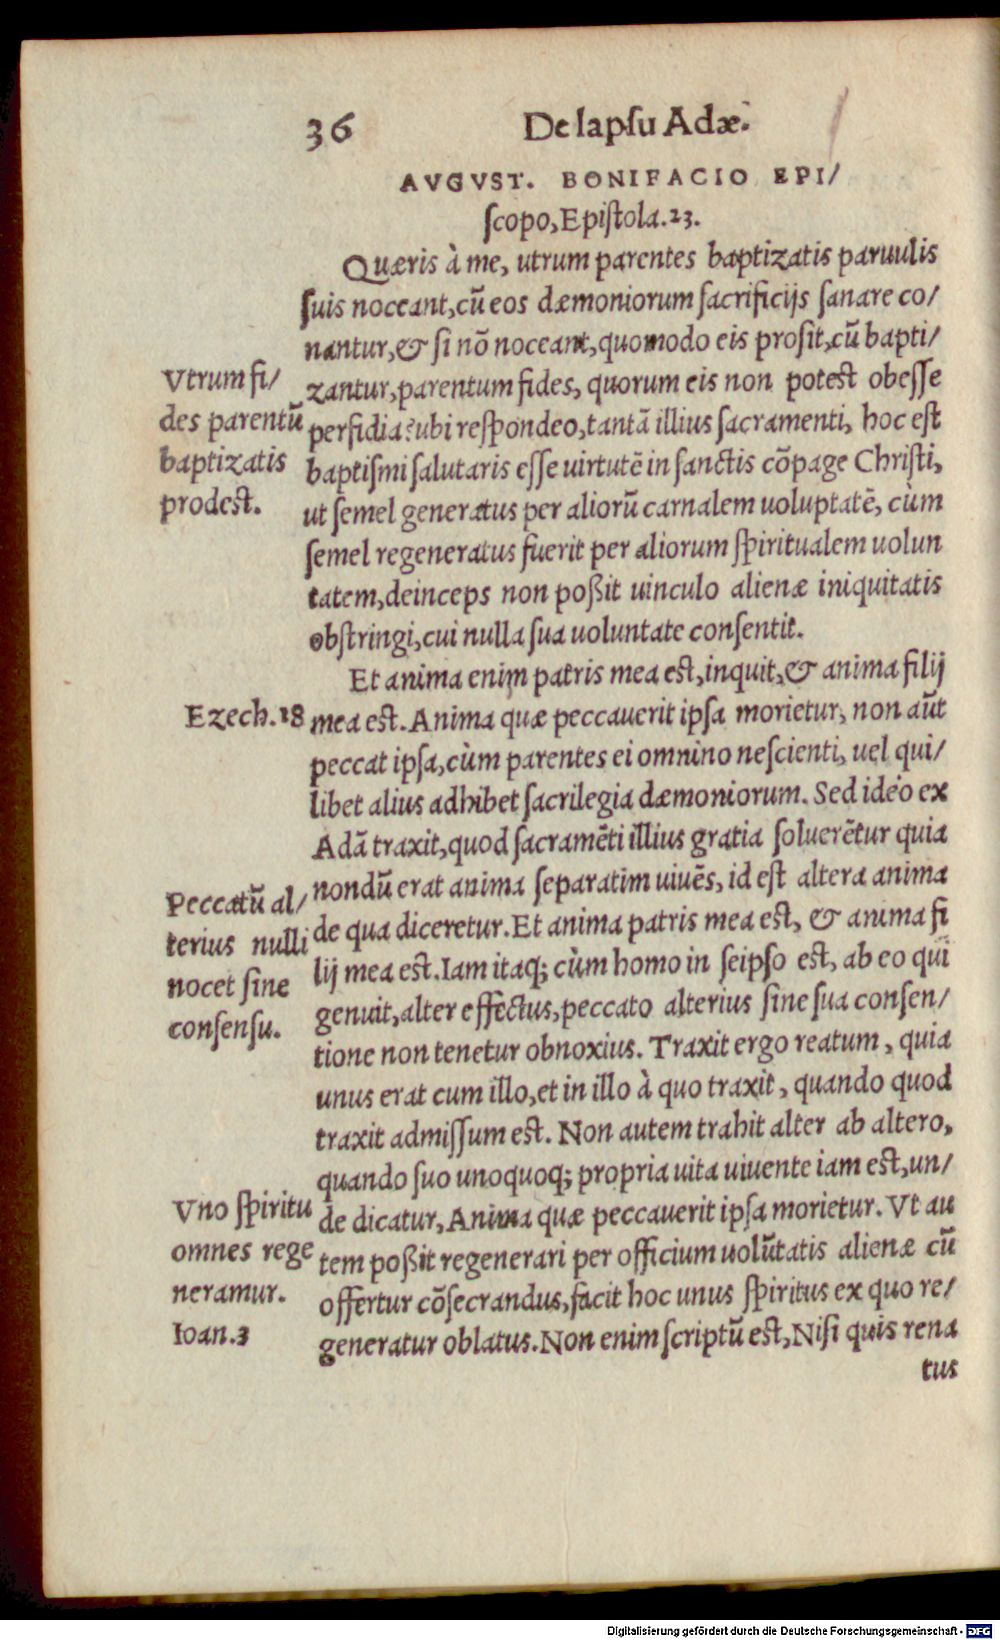 36 De lapsu Adæ.
AVGVST. BONIFACIO EPI/
ſcopo, Epiſtola.23.
Quæris à me, utrum parentes baptizatis paruulis
ſuis noceant,cũ eos dæmoniorum ſacrificijs ſanare co/
nantur,& ſi nõ noceant,quomodo eis proſit,cũ bapti/
zantur,parentum fides, quorum eis non potest obeſſe
perfidia? ubi reſpondeo,tantã illius ſacramenti, hoc eſt
baptiſmi ſalutaris eſſe uirtutẽ in ſanctis cõpage Chriſti,
ut ſemel generatus per aliorũ carnalem uoluptatẽ, cùm
ſemel regeneratus fuerit per aliorum ſpiritualem uolun
tatem,deinceps non poßit uinculo alienæ iniquitatis
obſtringi,cui nulla ſua uoluntate conſentit.
Et anima enim patris mea est,inquit,& anima filij
mea est.Anima quæ peccauerit ipſa morietur, non aũt
peccat ipſa,cùm parentes ei omnino neſcienti, uel qui/
libet alius adhibet ſacrilegia dæmoniorum. Sed ideo ex
Adã traxit,quod ſacramẽti illius gratia ſoluerẽtur quia
nondũ erat anima ſeparatim uiuẽs, id eſt altera anima
de qua diceretur.Et anima patris mea eſt, & anima fi
lij mea eſt.Iam itaq; cùm homo in ſeipſo est, ab eo qui
genuit,alter effectus,peccato alterius ſine ſua conſen/
tione non tenetur obnoxius. Traxit ergo reatum, quia
unus erat cum illo,et in illo à quo traxit, quando quod
traxit admiſſum est. Non autem trahit alter ab altero,
quando ſuo unoquoq; propria uita uiuente iam est,un/
de dicatur,Anima quæ peccauerit ipſa morietur. Vt au
tem poßit regenerari per officium uolũtatis alienæ cũ
offertur cõſecrandus,facit hoc unus ſpiritus ex quo re/
generatur oblatus.Non enim ſcriptũ eſt,Niſi quis rena
tus
Vtrum fi/
des parentũ
baptizatis
prodest.
Ezech.18
Peccatũ al/
terius nulli
nocet ſine
conſenſu.
Vno ſpiritu
omnes rege
neramur.
Ioan.3
Digitalisierung gefördert durch die Deutsche Forschungsgemeinschaft - DFG